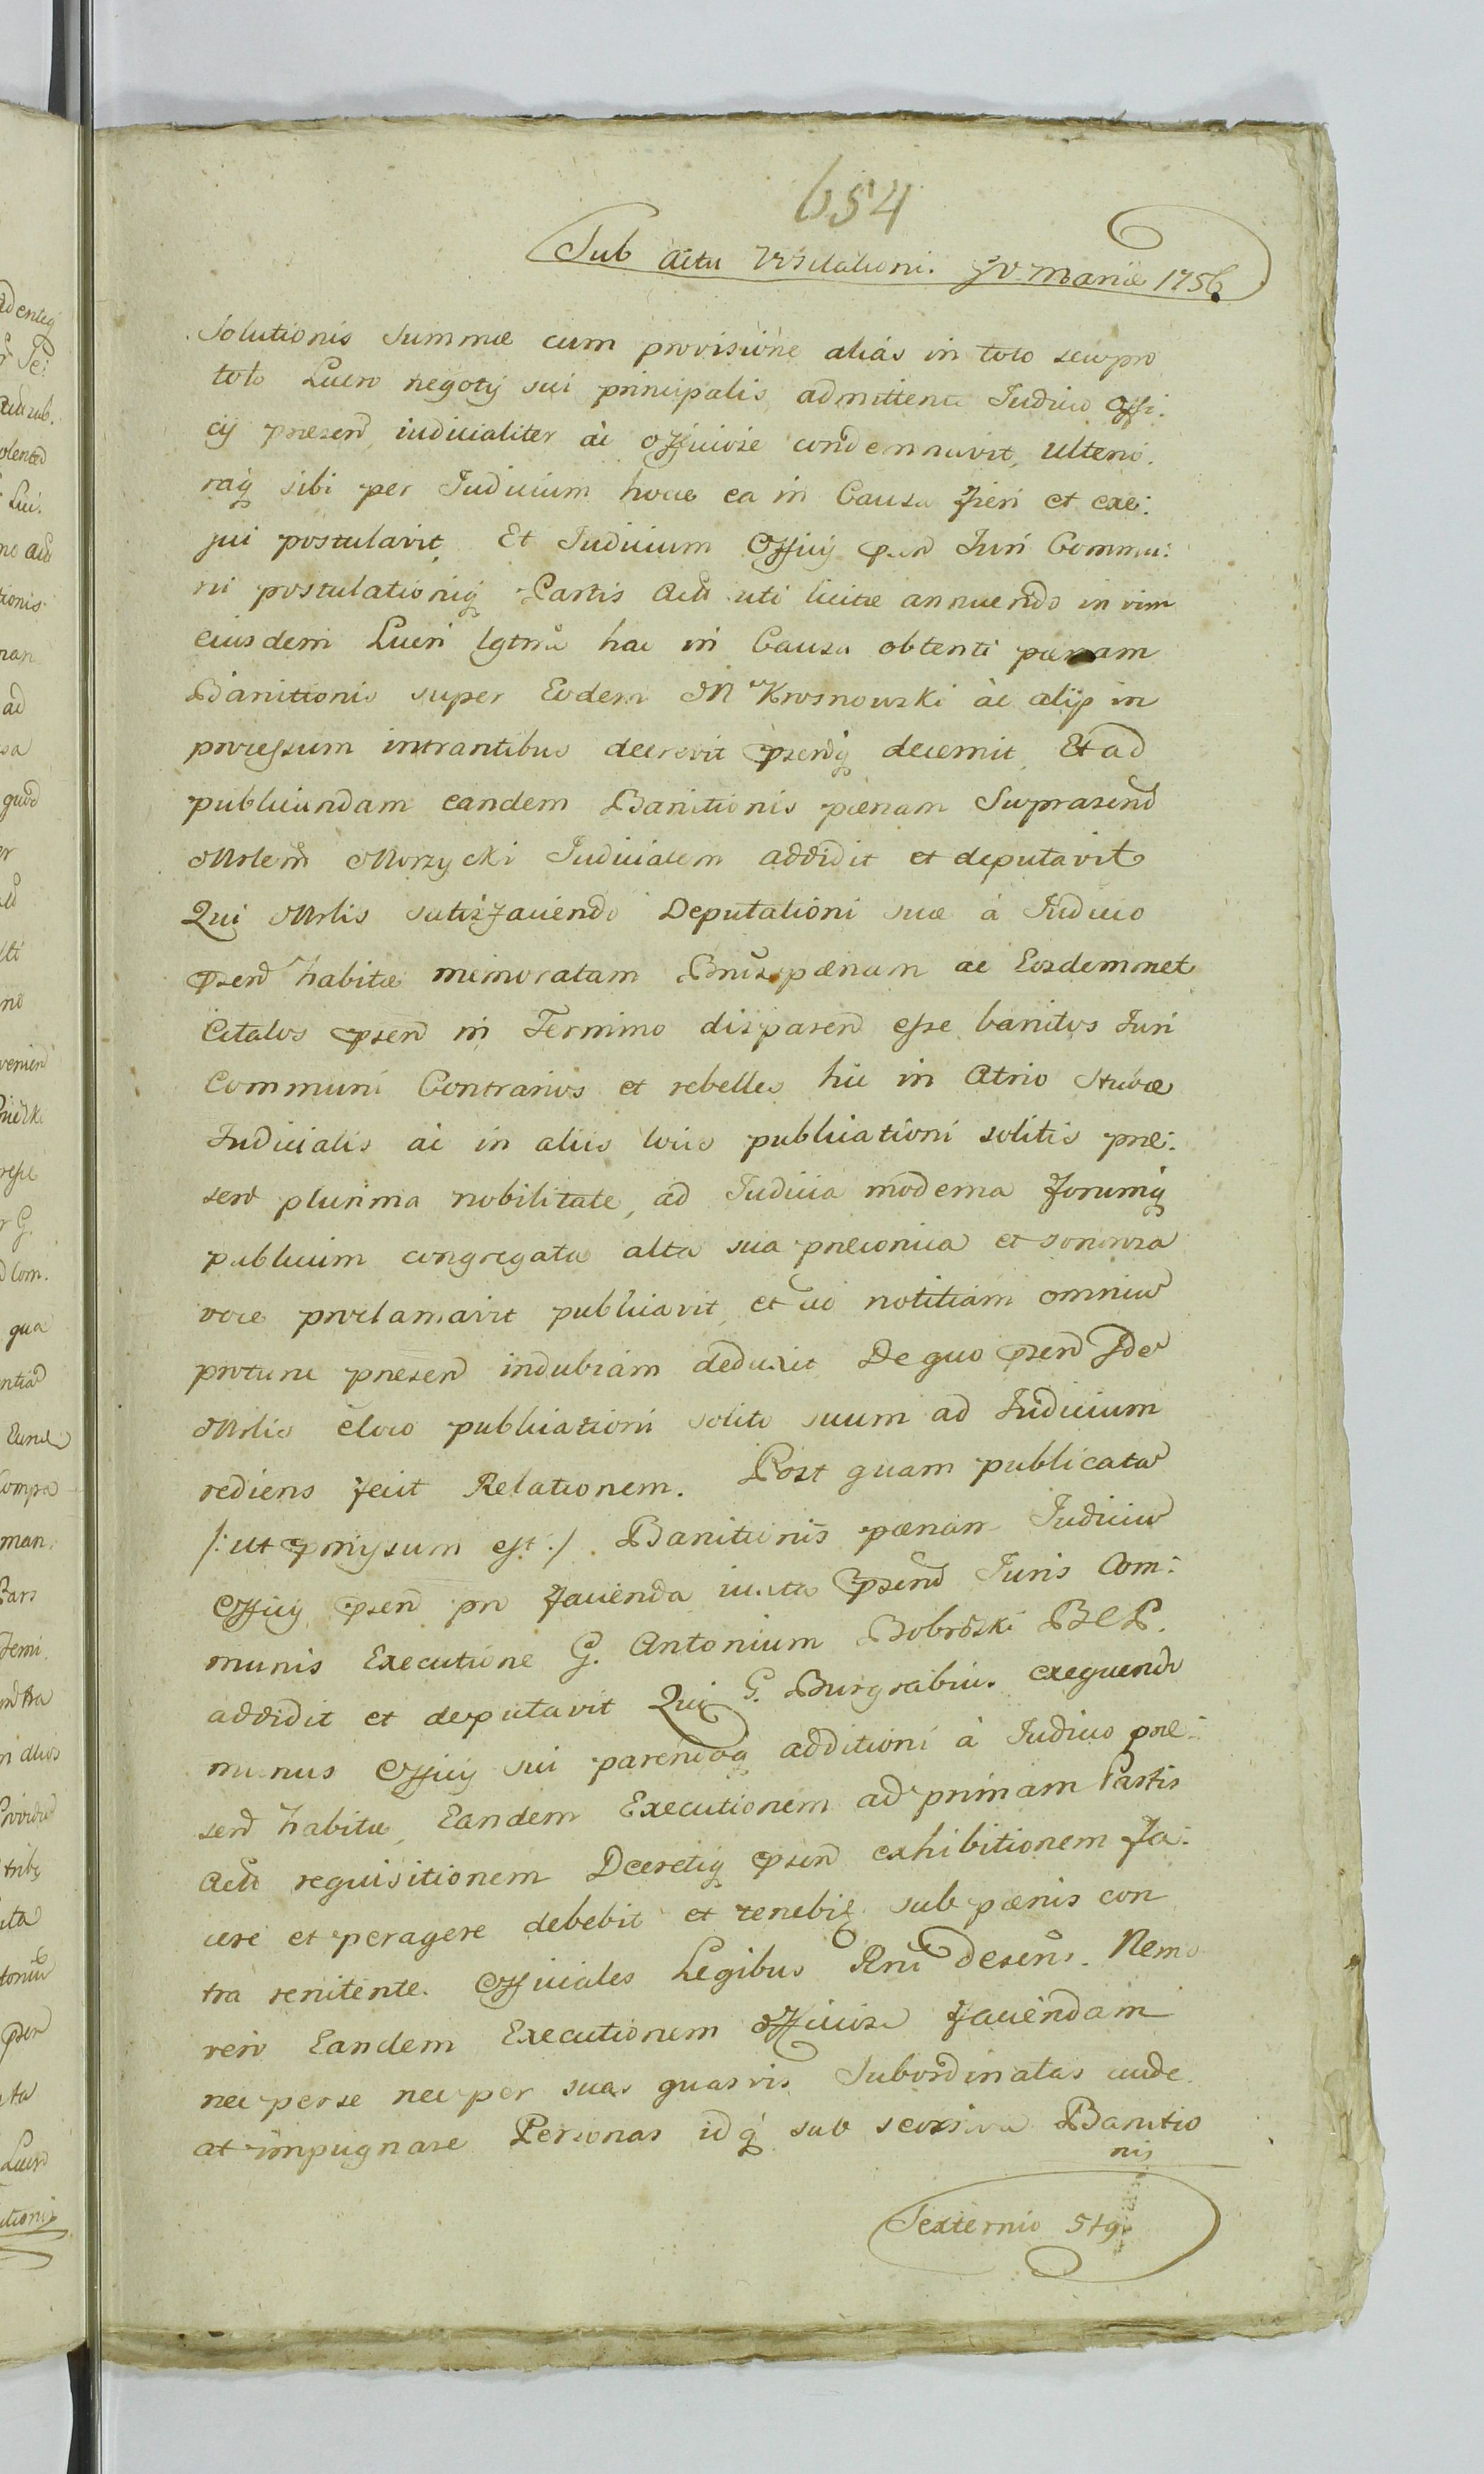 654
Sub Actu Visitationi. BV Mariæ 1756
Solutionis Summæ cum provisione aliás in toto seu pro
toto Lucro negotÿ sui principalis admittente Iudicio Offi:
cÿ præsend iudicialiter ac officiose condemnavit, Ulterio.
raq sibi per Iudicium hocce ea in Causa fieri et exe:
qui postulavit Et Iudicium Officÿ psend Iuri Commu:
ni postulationiq Partis Act uti licitæ annuendo in vim
eiusdem Lucri hac in Causa obtenti pænam
Banitionis super Eodem M Krosnowski ac alÿs in
processum intrantibus decrevit psendq decernit Et ad
publicandam eandem Banitionis pænam Suprasend
Mrlem Morzycki Iudicialem addidit et deputavit
Qui Mrlis satisfaciendo Deputationi suæ á Iudicio
psend habitæ memoratam Bnis pænam ac Eosdemmet
Citatos psend in Termino disparend esse banitos Iuri
Communi Contrarios et rebelles hic in Atrio Stubæ
Iudicialis ac in aliis locis publicationi solitis præ:
send plurima nobilitate, ad Iudicia moderna forumq
publicum congregata alta sua præconica et sonorosa
voce proclamavit publicavit et ad notitiam omnium
protunc præsend indubiam deduxit De quo psend Idem
Mrlis eloco publicationi solito suum ad Iudicium
rediens fecit Relationem. Post quam publicatam
/: ut præmissum est :/ Banitionis pænam Iudicium
Officÿ psend pro facienda iuxta psend Iuris Com:
munis Executione G. Antonium Bobròski BCP.
addidit et deputavit Qui G. Burgrabius exequendo
munus Officÿ sui parendoq additioni á Iudicio præ:
send habitæ, Eandem Executionem ad primam Partis
Act requisitionem Decretiq psend exhibitionem fa:
cere et peragere debebit et tenebit sub pænis con
tra renitente. Officiales Legibus Rni desens. Nemo
vero Eandem Executionem officiose faciendam
nec perse nec per suas quasvis Subordinatas aude
at impugnare Personas idq sub Banitio
nis
Sexternio 51